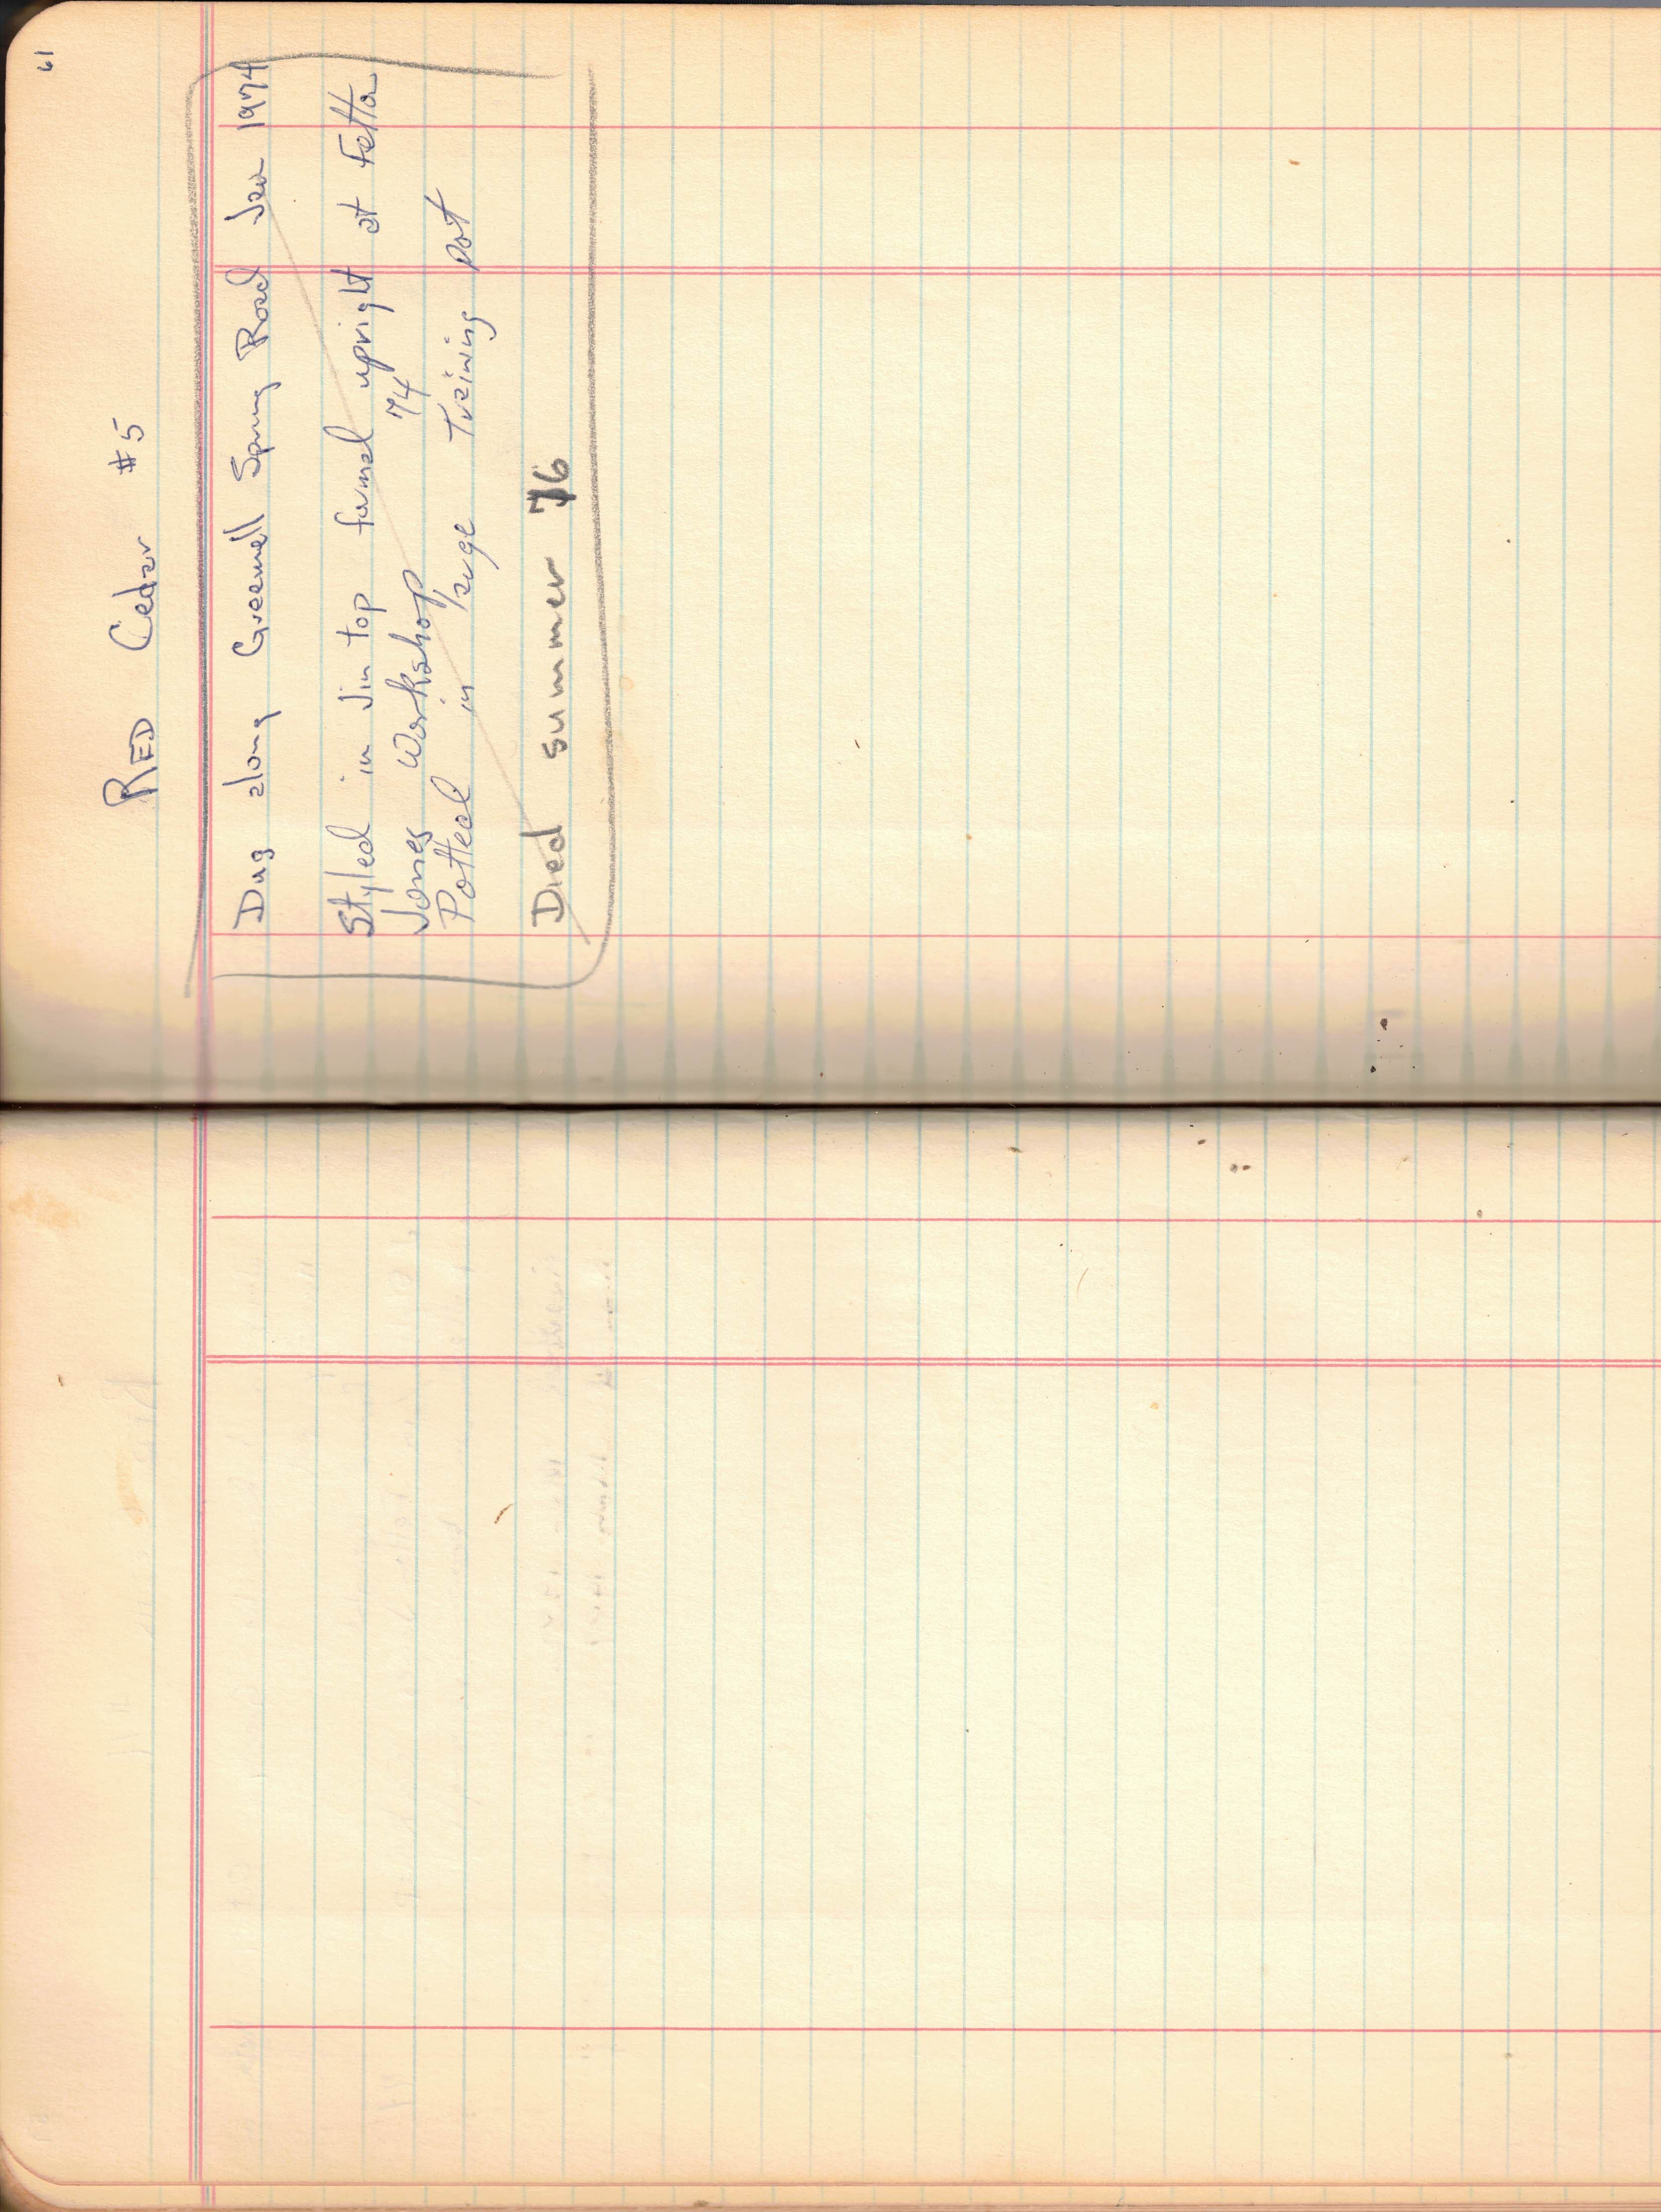 61
RED Cedar #5
Dug along Greenwell Spring Road Jan 1974
Styled in Jin top formal upright at Felton
Jones Workshop 74
Potted in large Training pot
Died summer 76